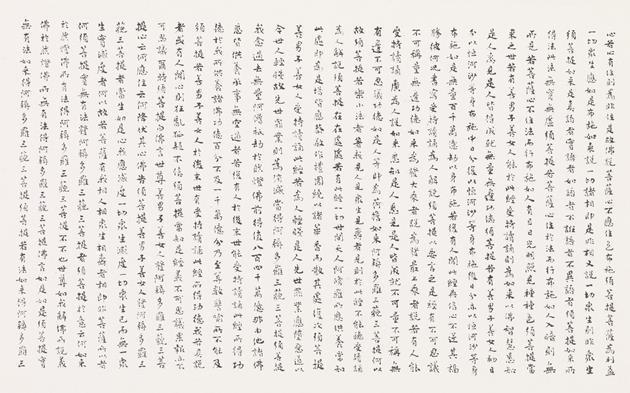 心若心有住則為非住是故佛說菩薩心不應住色布施須菩提菩薩為利益
一切眾生應如是布施如來說一切諸相即是非相又說一切眾生則非眾生
須菩提如來是真語者實語者如語者不誑語者不異語者須菩提如來所
得法此法無實無虛須菩提若菩薩心住於法而行布施如人入暗則無
所見若菩薩心不住法而行布施如人有目日光明照見種種色須菩提當
來之世若有善男子善女人能於此經受持讀誦則為如來以佛智慧悉知
是人悉見是人皆得成就無量無邊功德須菩提若有善男子善女人初日
分以恒河沙等身布施中日分復以恒河沙等身布施後日分亦以恒河沙等身
布施如是無量百千萬億劫以身布施若復有人聞此經典信心不逆其福
勝彼何況書寫受持讀誦為人解說須菩提以要言之是經有不可思議
不可稱量無邊功德如來為發大乘者說為發最上乘者說若有人能
受持讀誦廣為人說如來悉知是人悉見是人皆得成就不可量不可稱無
有邊不可思議功德如是人等則為荷擔如來阿耨多羅三藐三菩提何以
故須菩提若樂小法者著我見人見眾生見壽者見則於此經不能聽受讀誦
為人解說須菩提在在處處若有此經一切世間天人阿修羅所應供養當知
此處則為是塔皆應恭敬作禮圍繞以諸華香而散其處復次須菩提
善男子善女人受持讀誦此經若為人輕賤是人先世罪業應墮惡道以
今世人輕賤故先世罪業則為消滅當得阿耨多羅三藐三菩提須菩提
我念過去無量阿僧祇劫於然燈佛前得值八百四千萬億那由他諸佛
悉皆供養承事無空過者若復有人於後末世能受持讀誦此經所得功
德於我所供養諸佛功德百分不及一千萬億分乃至算數譬喻所不能及
須菩提若善男子善女人於後末世有受持讀誦此經所得功德我若具說
者或有人聞心則狂亂狐疑不信須菩提當知是經義不可思議果報亦不
可思議爾時須菩提白佛言世尊善男子善女人發阿耨多羅三藐三菩
提心云何應住云何降伏其心佛告須菩提善男子善女人發阿耨多羅三
藐三菩提者當生如是心我應滅度一切眾生滅度一切眾生已而無有一眾
生實滅度者何以故須菩提若菩薩有我相人相眾生相壽者相則非菩薩所以者
何須菩提實無有法發阿耨多羅三藐三菩提者須菩提於意云何如來
於然燈佛所有法得阿耨多羅三藐三菩提不不也世尊如我解佛所說義
佛於然燈佛所無有法得阿耨多羅三藐三菩提佛言如是如是須菩提實
無有法如來得阿耨多羅三藐三菩提須菩提若有法如來得阿耨多羅三